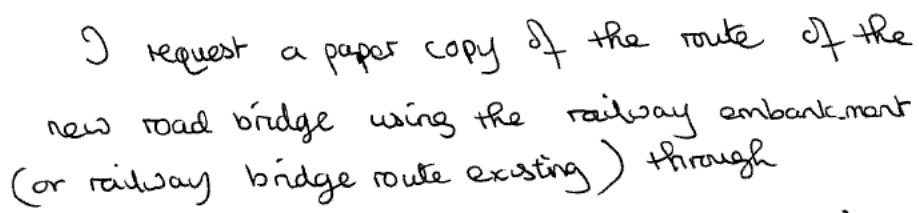 I request a paper copy of the route of the
new road bridge using the railway embankment
(or railway bridge route existing) through